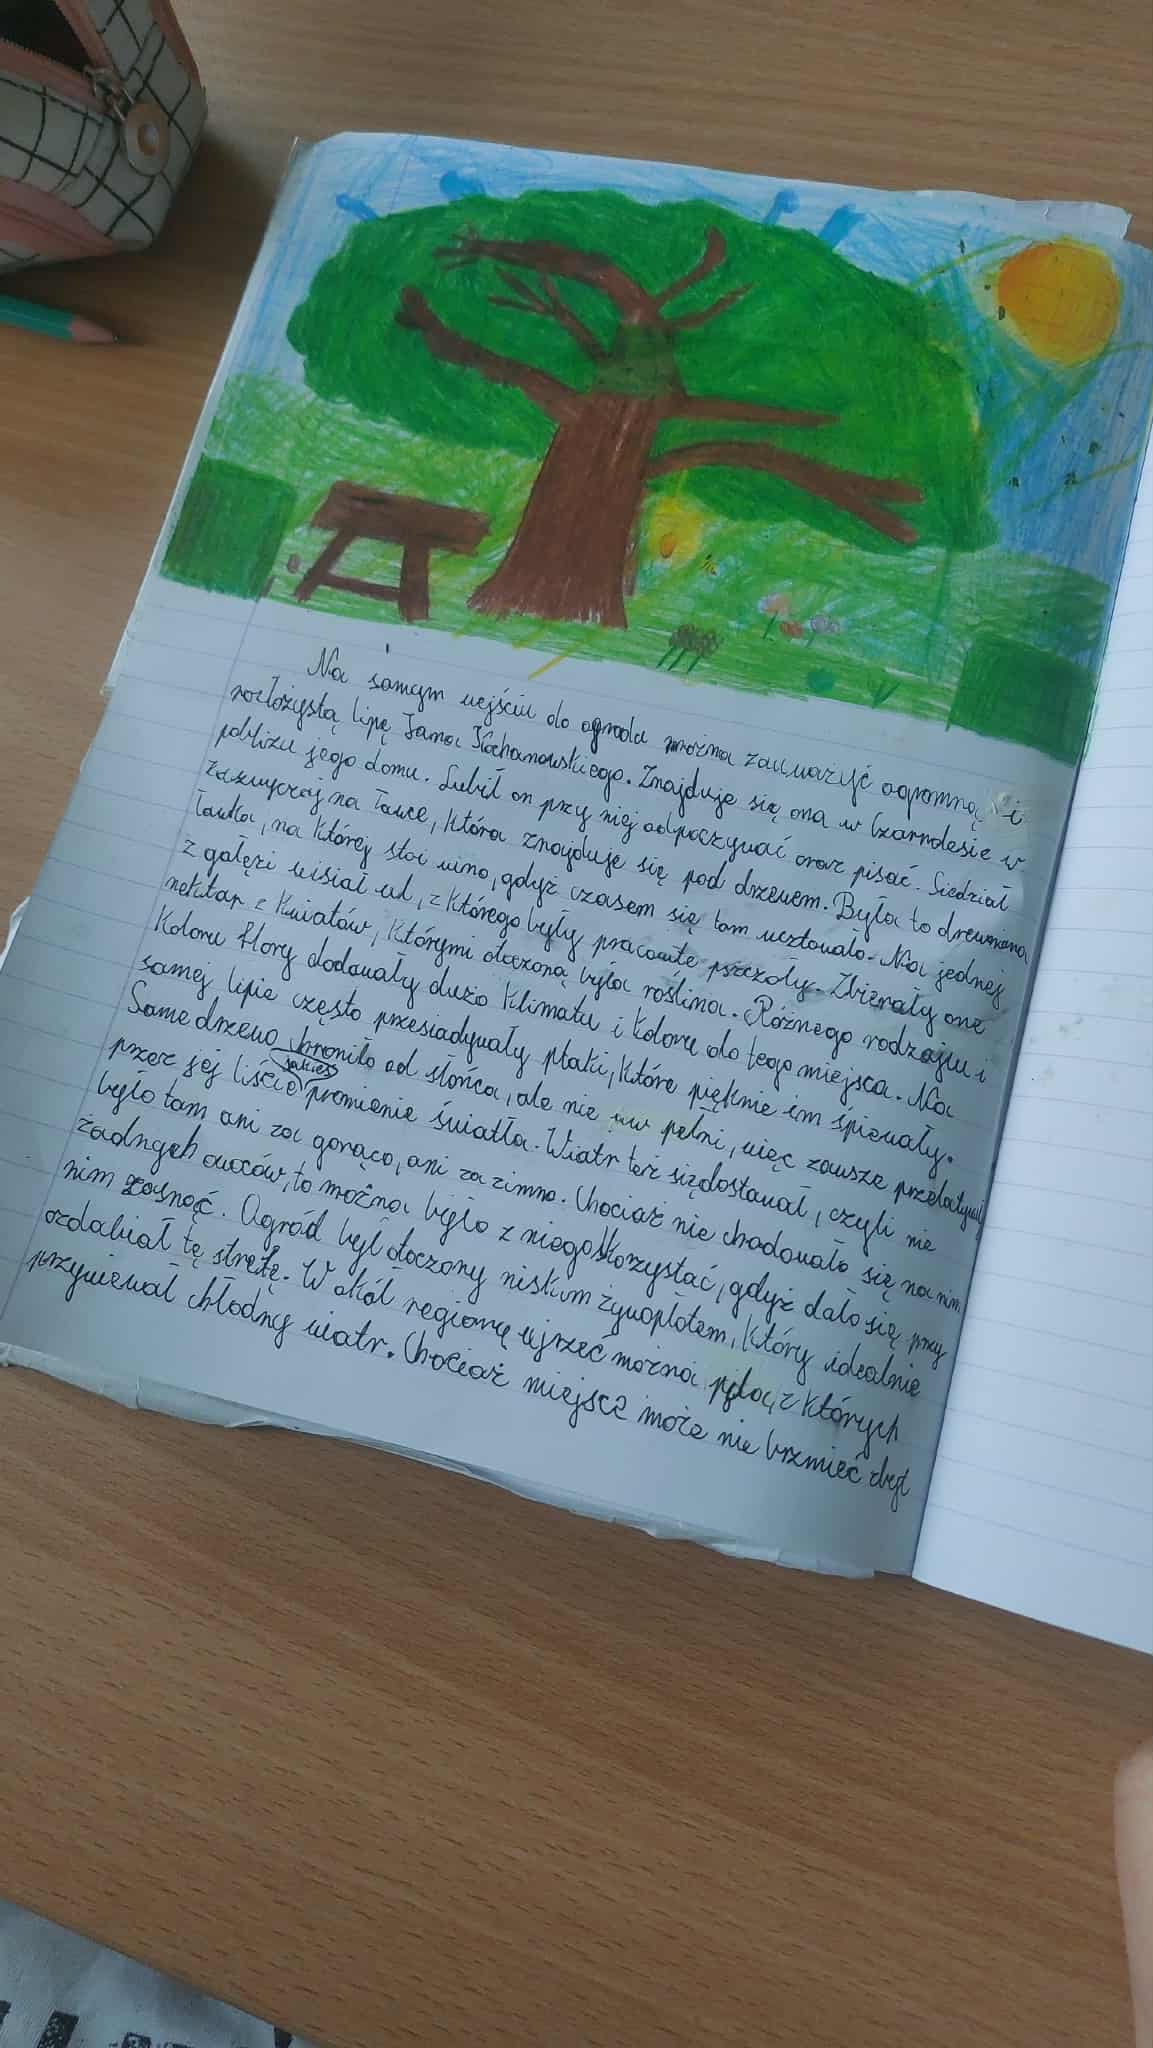 Na samym wejściu do ogrodu można zauważyć ogromną i
rozłożystą lipę Jana Kochanowskiego. Znajduje się ona w Czarnolesie w
pobliżu jego domu. Lubił on przy niej odpoczywać oraz pisać. Siedział
zazwyczaj na ławce, która znajduje się pod drzewem. Była to drewniana
ławka, na której stoi wino, gdyż czasem się tam ucztowało. Na jednej
z gałęzi wisiał ul, z którego były pracowite pszczoły. Zbierały one
nektar z kwiatów, którymi otoczona była roślina. Różnego rodzaju i
koloru flory dodawały dużo klimatu i koloru do tego miejsca. Na
samej lipie często przesiadywały ptaki, które pięknie im śpiewały.
Same drzewo chroniło od słońca, ale nie w pełni, więc zawsze przelatywały
przez jej liście jakieś promienie światła. Wiatr też się dostawał, czyli nie
było tam ani za gorąco, ani za zimno. Chociaż nie chodowało się na nim
żadnych owoców, to można było z niego skorzystać, gdyż dało się przy
nim zasnąć. Ogród był otoczony niskim żywopłotem, który idealnie
ozdabiał tę strefę. W okół regionu ujrzeć można pola, z których
przywiewał chłodny wiatr. Chociaż miejsce może nie brzmieć zbyt